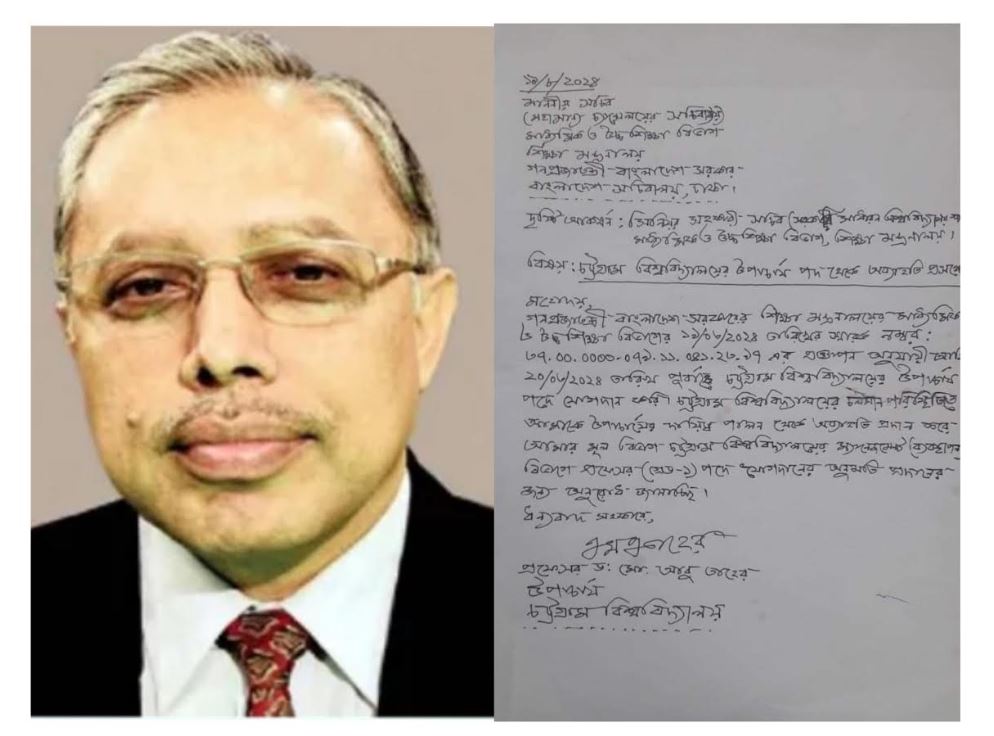 ১১/৮/২০২৪
মাননীয় সচিব
(মহামান্য চ্যান্সেলরের সচিবালয়)
মাধ্যমিক ও উচ্চ শিক্ষা বিভাগ
শিক্ষা মন্ত্রনালয়
গনপ্রজাতন্ত্রী বাংলাদেশ সরকার
বাংলাদেশ সচিবালয়, ঢাকা।
দৃষ্টি আকর্ষন : সিনিয়র সহকারী সচিব (সরকারী সাধারন বিশ্ববিদ্যালয়
মাধ্যমিক ও উচ্চ শিক্ষা বিভাগ, শিক্ষা মন্ত্রনালয়।
বিষয় : চট্টগ্রাম বিশ্ববিদ্যালয়ের উপাচার্য পদ থেকে অব্যাহতি প্রসঙ্গে
মহোদয়,
গনপ্রজাতন্ত্রী বাংলাদেশ সরকারের শিক্ষা মন্ত্রনালয়ের মাধ্যমিক
ও উচ্চ শিক্ষা বিভাগের ১৯/০৩/২০২৪ তারিখের স্মারক নম্বর :
এর প্রজ্ঞাপন অনুযায়ী আমি
২০/০৩/২০২৪ তারিখ পূর্বাহ্নে চট্টগ্রাম বিশ্ববিদ্যালয়ের উপাচার্য
পদে যোগদান করি। চট্টগ্রাম বিশ্ববিদ্যালয়ের চলমান পরিস্থিতিতে
আমাকে উপাচার্যের দায়িত্ব পালন থেকে অব্যাহতি প্রদান করে
আমার মূল বিভাগ চট্টগ্রাম বিশ্ববিদ্যালয়ের ম্যানেজমেন্ট (ব্যবস্থাপনা
বিভাগে প্রফেসর (গ্রেড-১) পদে যোগদানের অনুমতি প্রদানের
জন্য অনুরোধ জানাচ্ছি।
ধন্যবাদ সহকারে,
প্রফেসর ড: মো. আবু তাহের
উপাচার্য
চট্টগ্রাম বিশ্ববিদ্যালয়